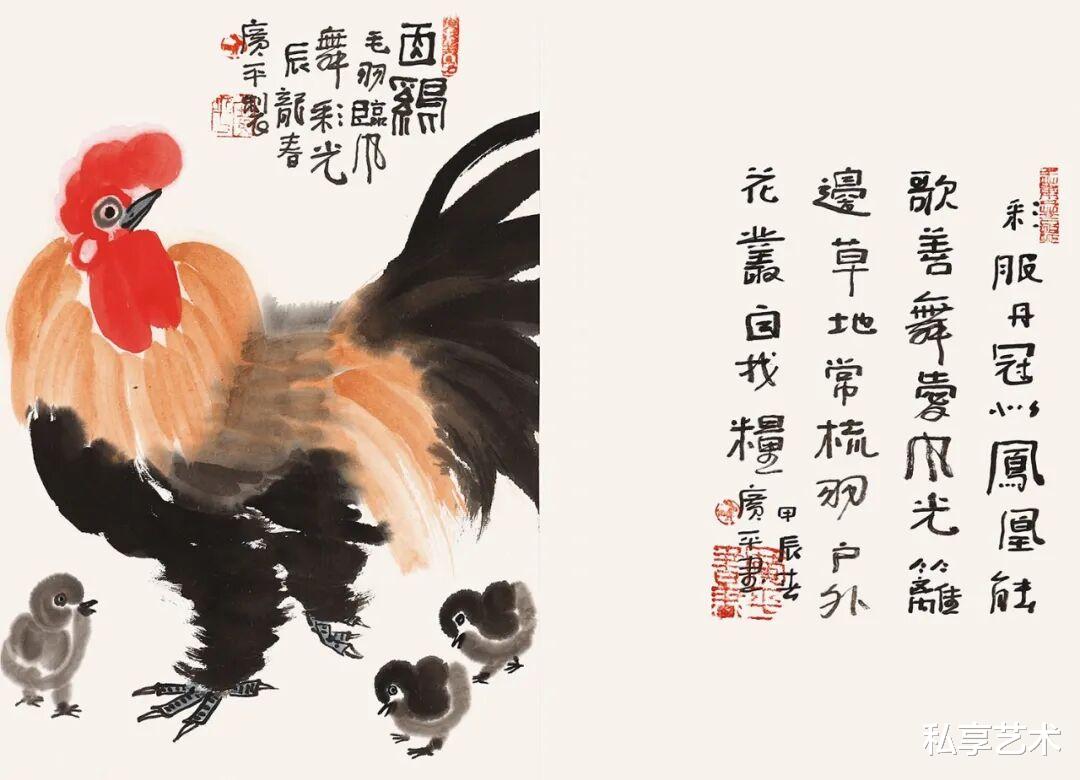 酉鷄
毛羽臨風
舞彩光
辰龍春
廣平製
彩服丹冠似鳳凰能
歌善舞愛風光籬
邊草地常梳羽户外
花叢自找糧
甲辰春
廣平畫
私享艺术